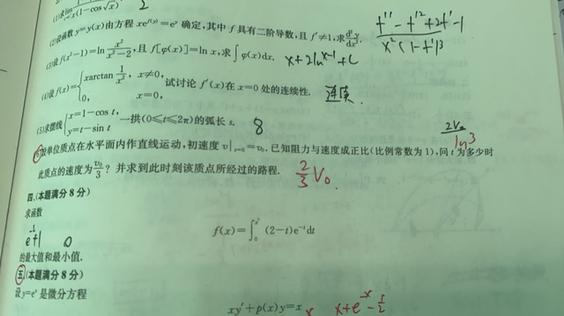 (2)设函数 y=y(x)由方程 xe^{f(y)}=e^y 确定,其中 f 具有二阶导数,且 f'≠1,求 d²y/dx².
f''-f'²+2f'-1 / x²(1-f')³
(3)设 f(x²-1)=ln x²/(x²-2),且 f[φ(x)]=lnx,求∫φ(x)dx. x+2ln^{x-1}+C
(4)设 f(x)={xarctan 1/x², x≠0, 0, x=0, 试讨论 f'(x)在 x=0 处的连续性. 连续
(5)求摆线{x=1-cos t, y=t-sin t 一拱(0≤t≤2π)的弧长 s. 8
设单位质点在水平面内作直线运动,初速度 v|_{t=0}=v₀,已知阻力与速度成正比(比例常数为1),问 t 为多少时
此质点的速度为 v₀/3?并求到此时刻该质点所经过的路程. 2/3 V₀
四、(本题满分 8 分)
求函数
f(x)=∫₀^{x²}(2-t)e^{-t}dt
的最大值和最小值.
五、(本题满分 8 分)
设 y=e^x 是微分方程
xy'+p(x)y=x